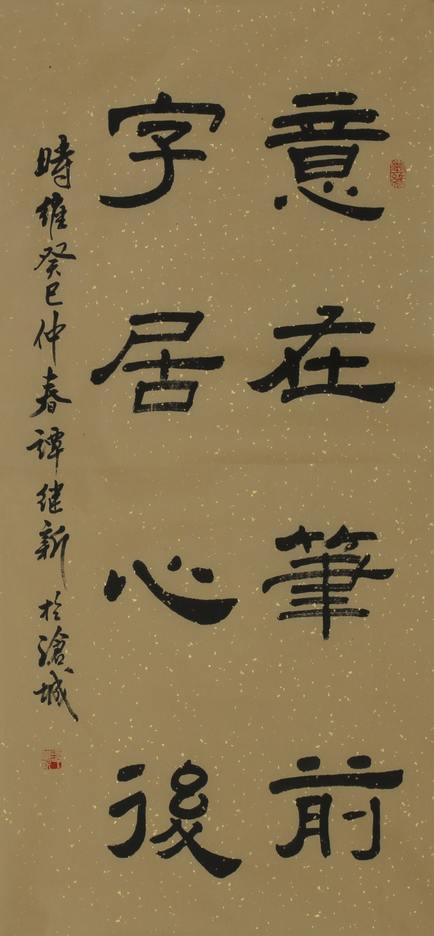 意在筆前
字居心後
時維癸巳仲春譚継新於滄城